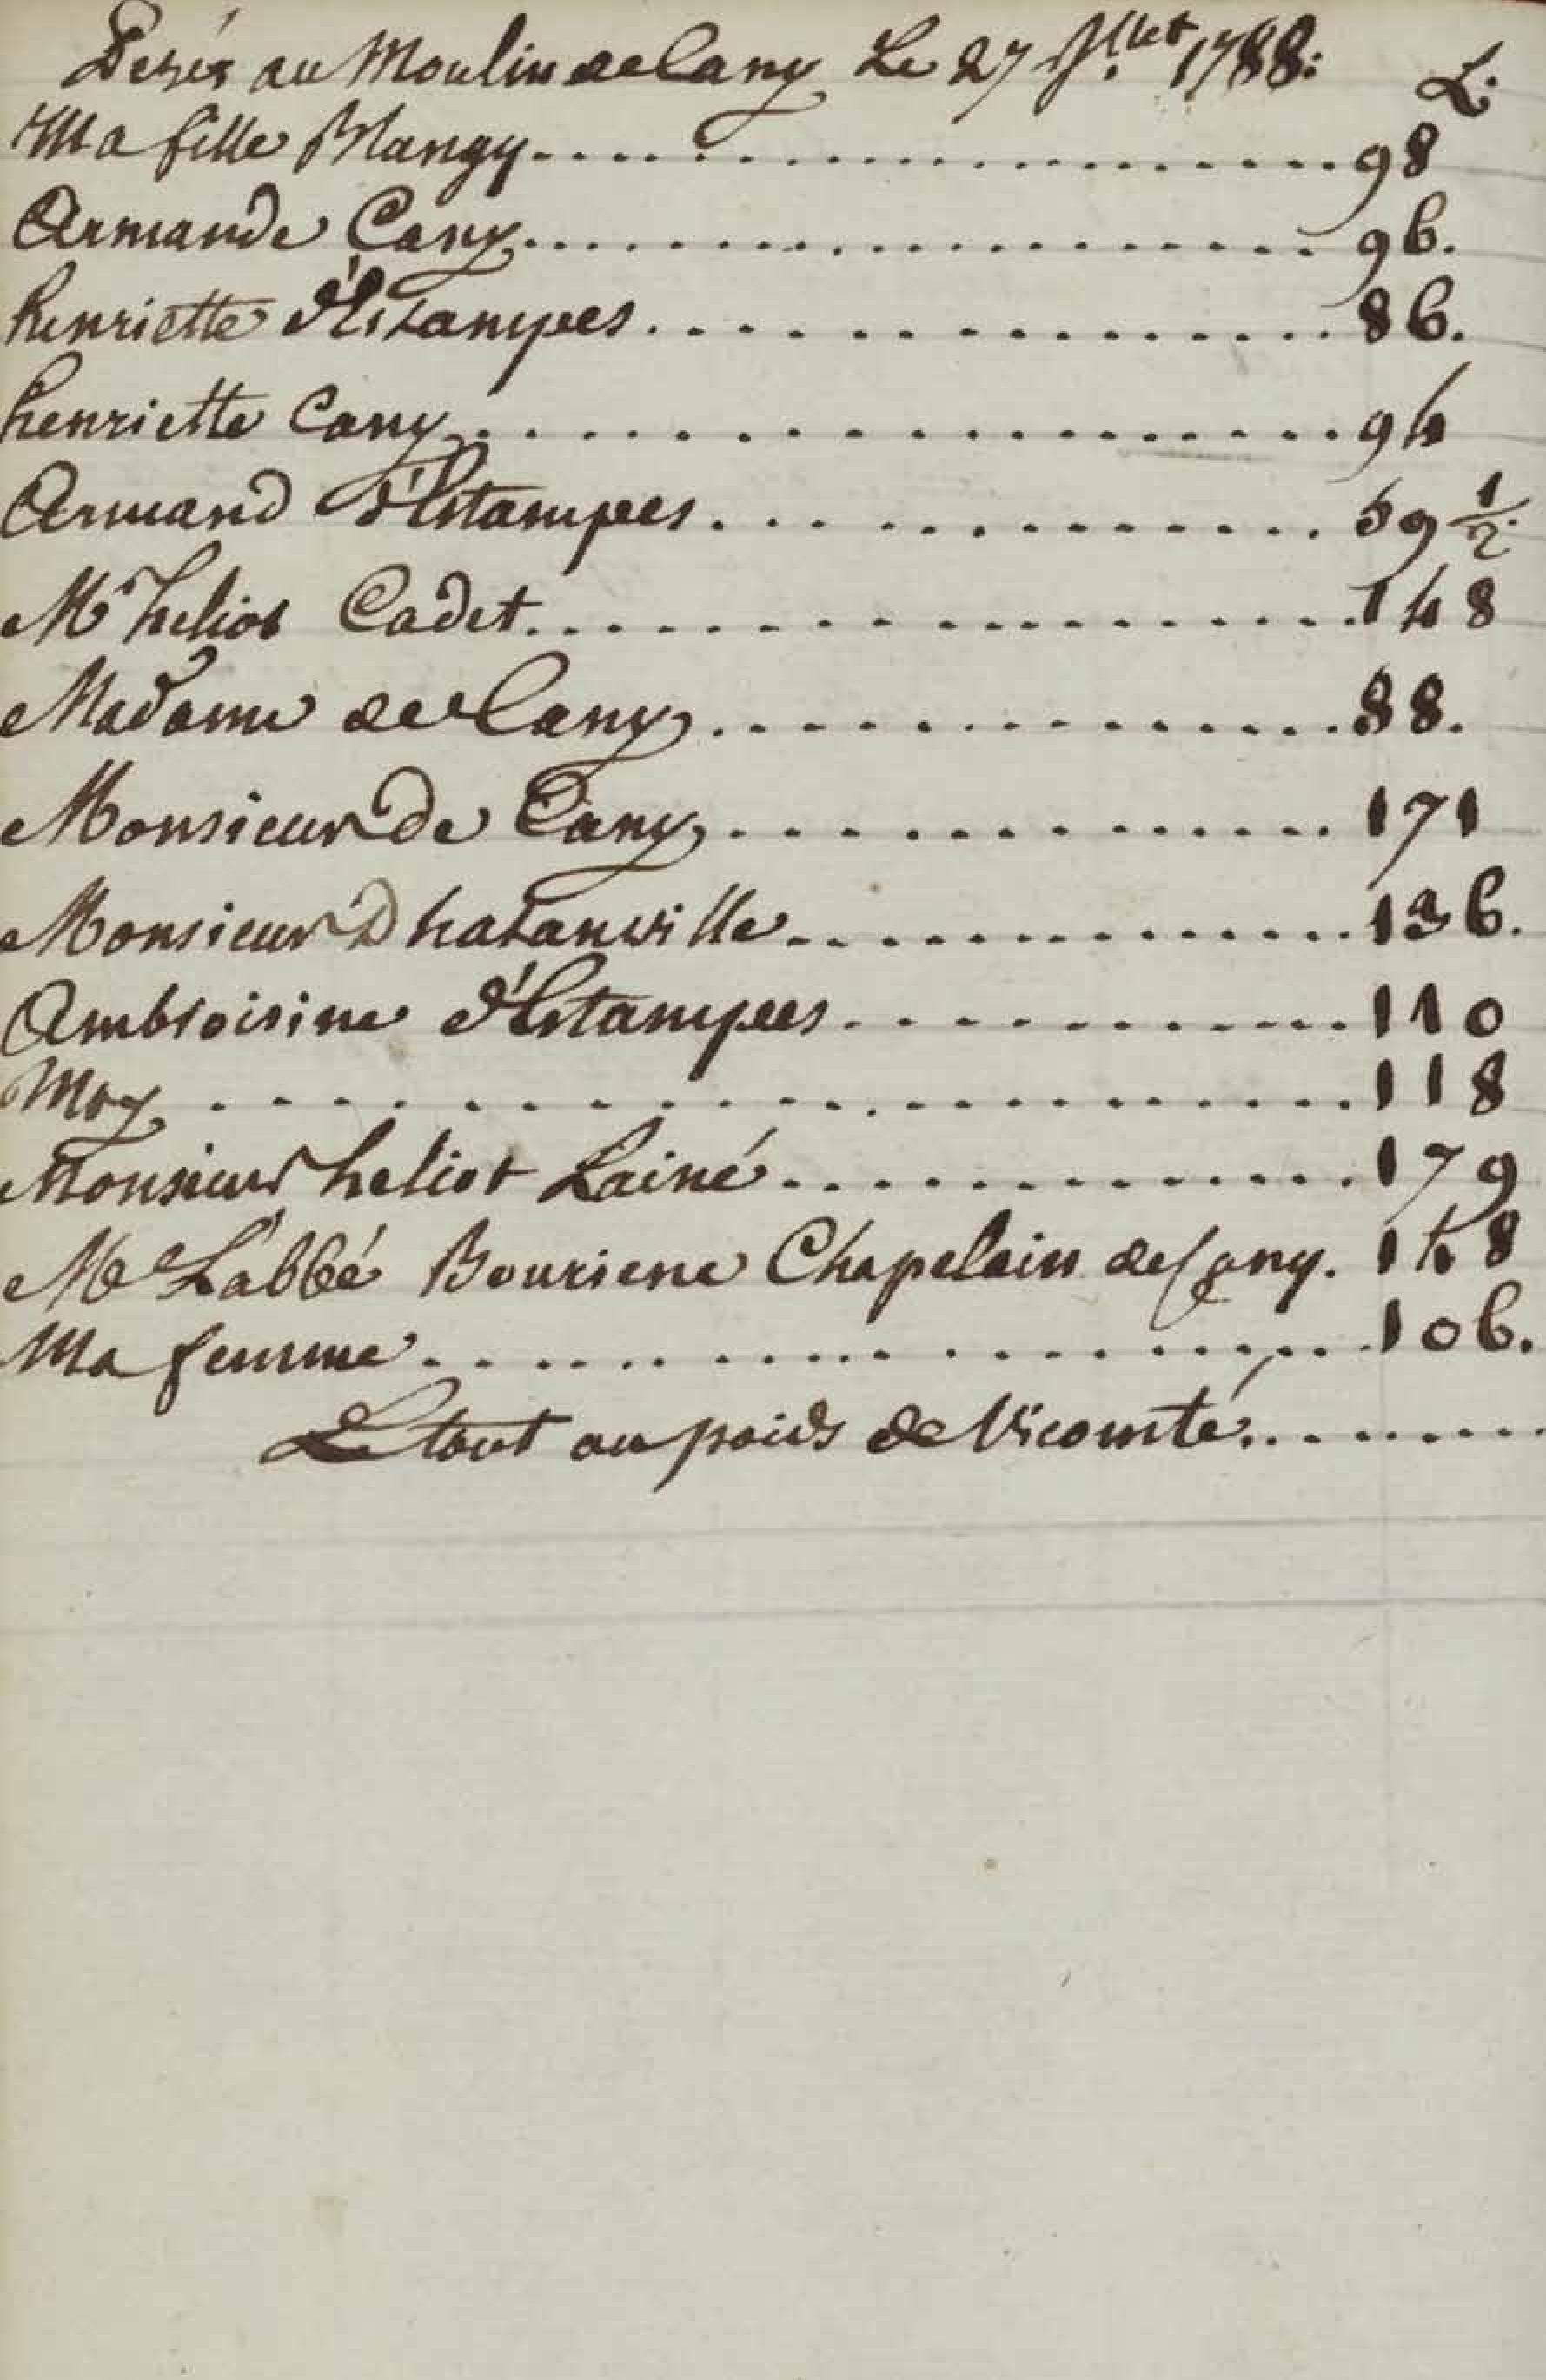 Pesés au Moulin de Cany Le 27 Jllet 1788: L.
Ma fille Blangy........................98
Armande Cany........................96.
henriette d'Estampes........................86.
henriette Cany........................94
Armand d'Estampes........................59 1/2
Mr heliot Cadet........................148
Madame de Cany........................88.
Monsieur De Cany........................171
Monsieur D hatanville........................136.
Ambroisine d'Estampes........................110
Moy........................118
Monsieur heliot Lainé........................179
Mr L'abbé Bouriene Chapelain de Cany. 148
Ma femme........................106.
Le tout au poids de Vicomté.........